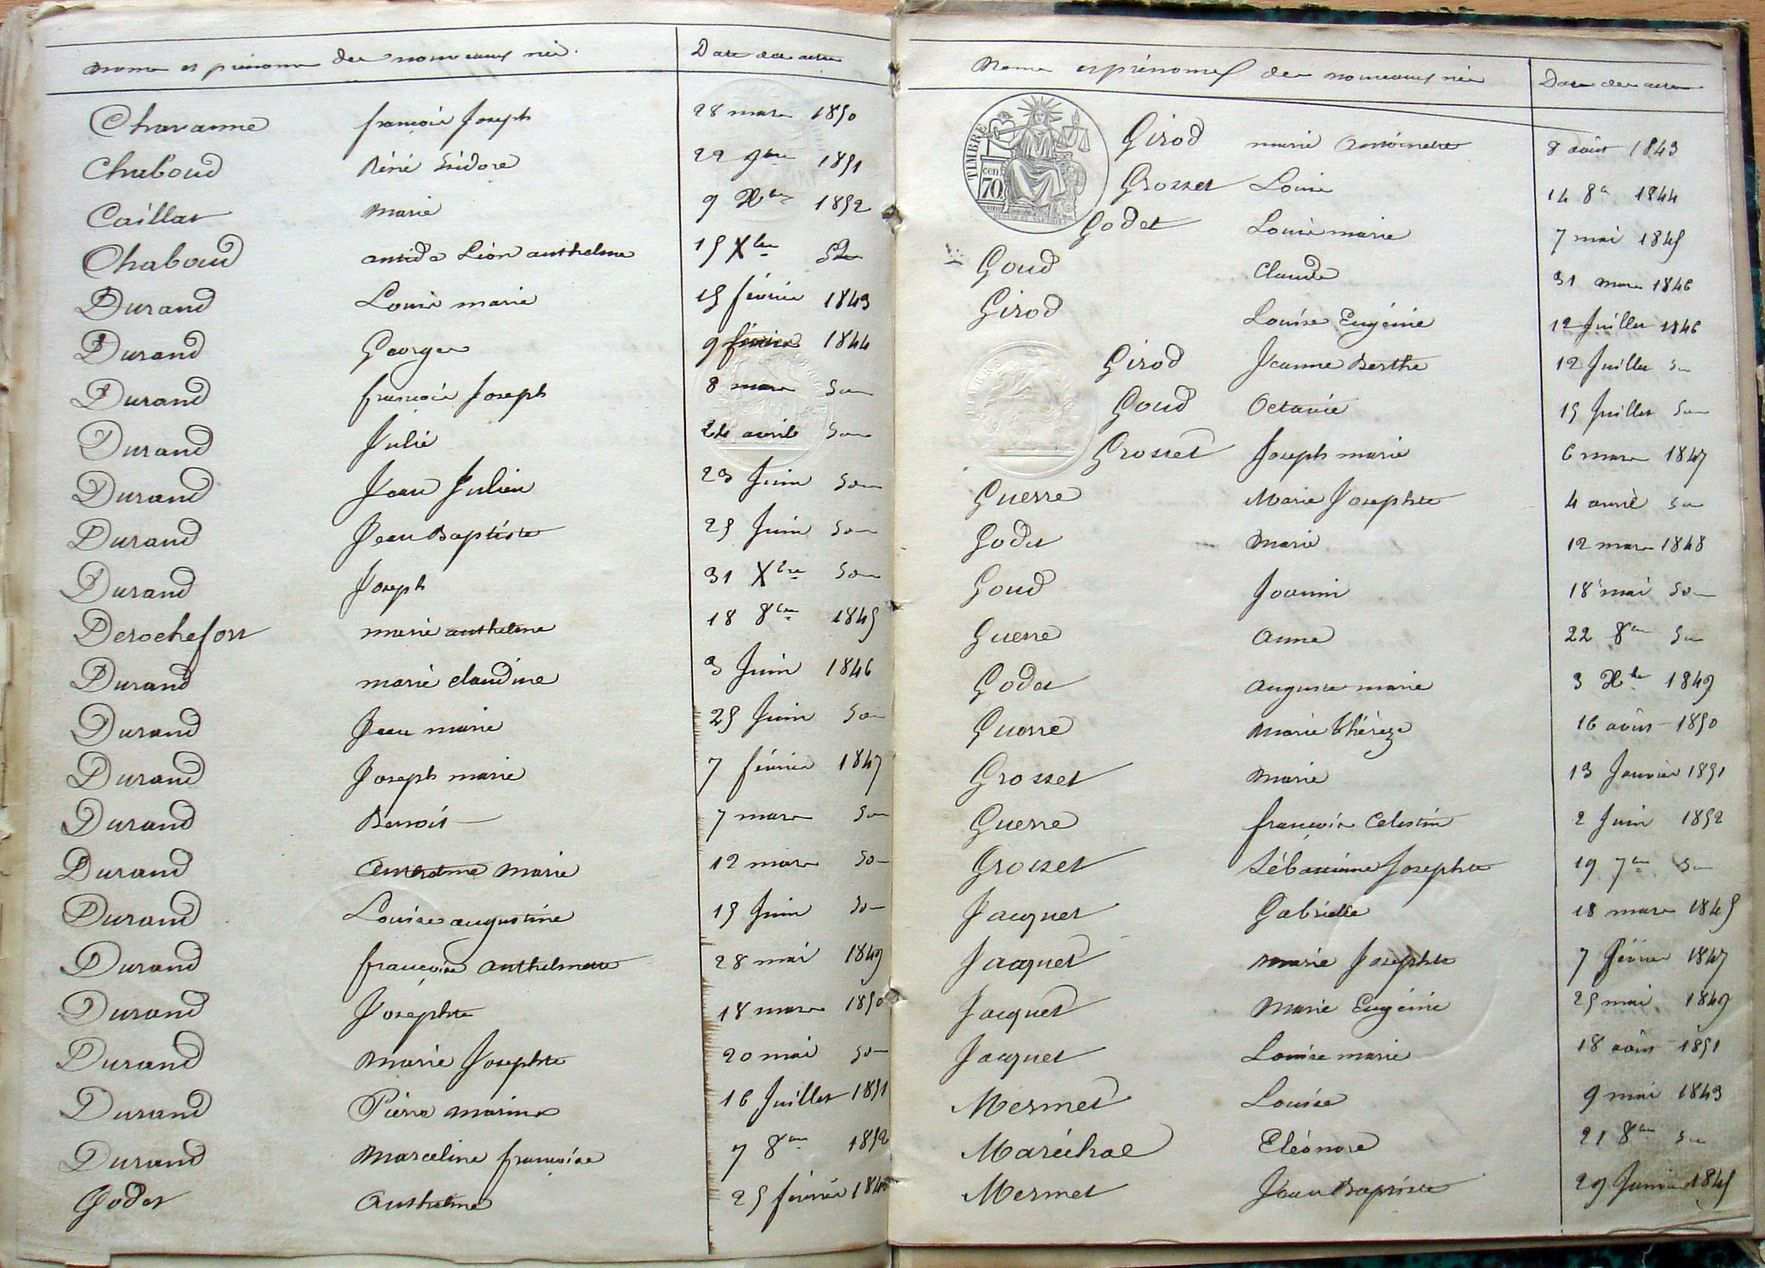 Noms et prénoms des nouveaux nés. Date des actes
Chavanne françois Joseph 28 mars 1850
Chaboud Réné Isidore 22 9bre 1851
Caillat Marie 9 Xbre 1852
Chaboud Léon anthelme 15 Xbre
Durand Louis marie 15 février 1843
Durand Georges 9 février 1844
Durand françois Joseph 8 mars
Durand Julie 24 avril
Durand Jean Julien 23 Juin
Durand Jean Baptiste 25 Juin
Durand Joseph 31 Xbre
Derochefort marie anthelme 18 8bre 1845
Durand marie claudine 3 Juin 1846
Durand Jean marie 25 Juin
Durand Joseph marie 7 février 1847
Durand Benoit 7 mars
Durand Anthelme Marie 12 mars
Durand Louise augustine 15 Juin
Durand françoise anthelmette 28 mai 1849
Durand Josephte 18 mars 1850
Durand Marie Josephte 20 mai
Durand Pierre marius 16 Juillet 1851
Durand Marceline françoise 7 8bre 1852
Godet Anthelme 25 février
Noms et prénoms des nouveaux nés Date des actes
TIMBRE
70
Girod marie Antoinette 8 août 1843
Grosset Louis 14 8bre 1844
Godet Louise marie 7 mai 1845
Goud Claude 31 mars 1846
Girod Louise Eugénie 12 Juillet 1846
Girod Jeanne Berthe 12 Juillet
Goud Octavie 15 Juillet
Grosset Joseph marie 6 mars 1847
Guerre Marie Josephte 4 avril
Godet Marie 12 mars 1848
Goud Joanni 18 mai
Guerre Anne 22 8bre
Godet Auguste marie 3 Xbre 1849
Guerre Marie thérèze 16 août 1850
Grosset Marie 13 Janvier 1851
Guerre françois Celestin 2 Juin 1852
Grosset Sébastienne Josephte 19 7bre
Jacquet Gabrielle 18 mars 1845
Jacquet Marie Josephte 7 février 1847
Jacquet Marie Eugénie 25 mai 1849
Jacquet Louise marie 18 août 1851
Mermet Louise 9 mai 1843
Maréchal Eléonore 21 8bre
Mermet Jean Baptiste 29 1845